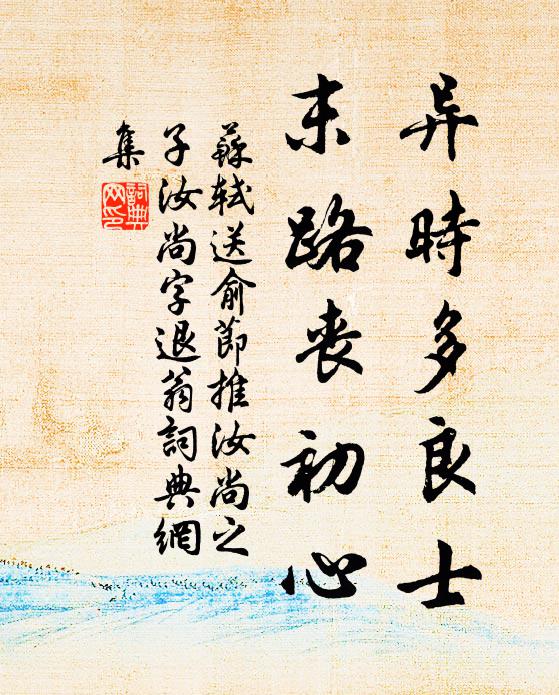 异時多良士
末路喪初心
蘇軾送俞節推汝尚之
子汝尚字退翁詞典網
集
詞典网印